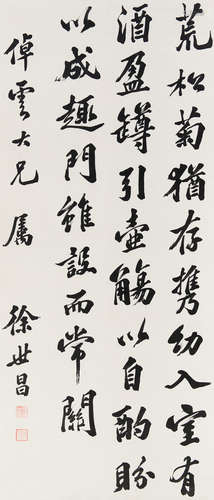 荒松菊猶存携幼入室有
酒盈罇引壺觴以自酌盼
以成趣門雖設而常關
倬雲大兄 属 徐世昌